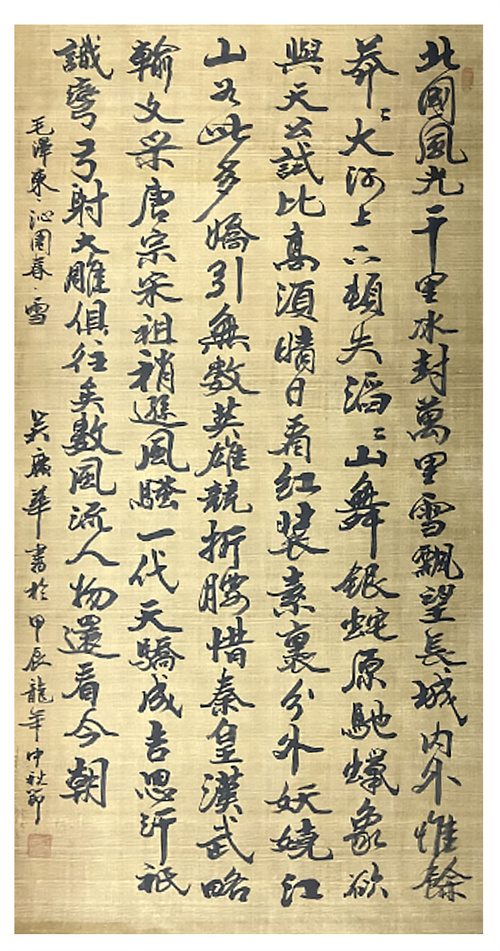 北國風光千里冰封萬里雪飄望長城内外惟餘
莽々大河上下頓失滔々山舞銀蛇原馳蠟象欲
與天公試比高須晴日看紅裝素裹分外妖嬈江
山如此多嬌引無數英雄競折腰惜秦皇漢武略
輸文采唐宗宋祖稍遜風騷一代天驕成吉思汗祇
識彎弓射大雕俱往矣數風流人物還看今朝
毛澤東·沁園春·雪 吳廣華書於甲辰龍年中秋節